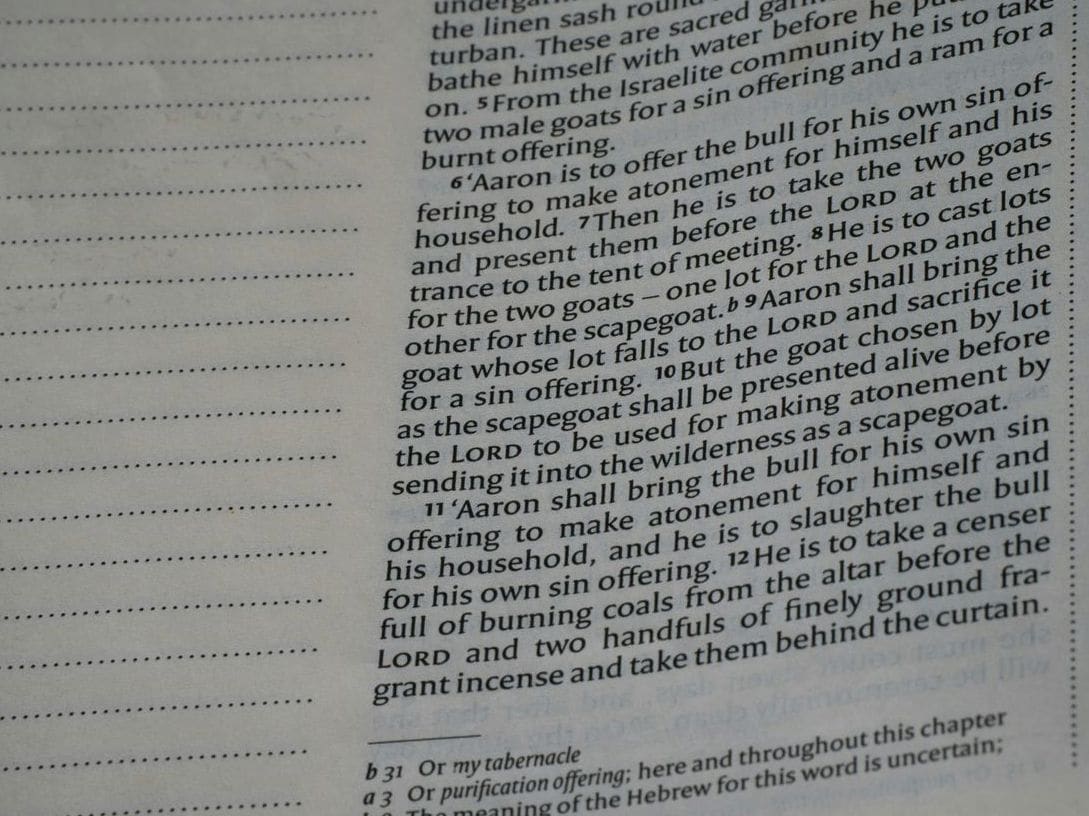 the linen sash round
turban. These are sacred
bathe himself with water before he
on. 5 From the Israelite community he is to take
two male goats for a sin offering and a ram for a
burnt offering.
6 ‘Aaron is to offer the bull for his own sin of-
fering to make atonement for himself and his
household. 7 Then he is to take the two goats
and present them before the LORD at the en-
trance to the tent of meeting. 8 He is to cast lots
for the two goats – one lot for the LORD and the
other for the scapegoat. b 9 Aaron shall bring the
goat whose lot falls to the LORD and sacrifice it
for a sin offering. 10 But the goat chosen by lot
as the scapegoat shall be presented alive before
the LORD to be used for making atonement by
sending it into the wilderness as a scapegoat.
11 ‘Aaron shall bring the bull for his own sin
offering to make atonement for himself and
his household, and he is to slaughter the bull
for his own sin offering. 12 He is to take a censer
full of burning coals from the altar before the
LORD and two handfuls of finely ground fra-
grant incense and take them behind the curtain.
b 31 Or my tabernacle
a 3 Or purification offering; here and throughout this chapter
The meaning of the Hebrew for this word is uncertain;